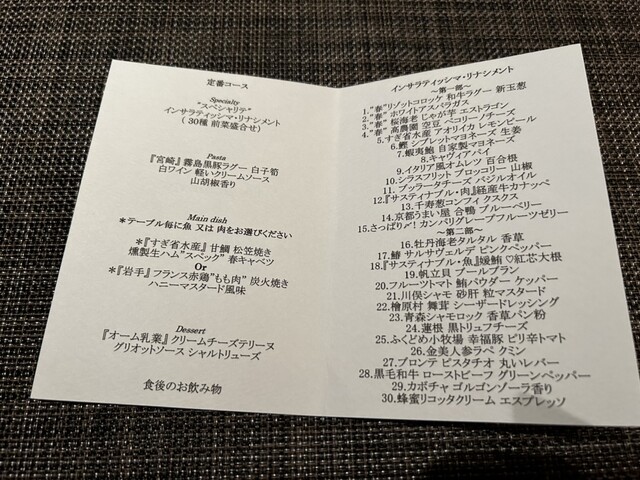 定番コース
Specialty
"スペシャリテ"
インサラティッシマ・リナシメント
(30種 前菜盛合せ)
Pasta
『宮崎』霧島黒豚ラグー 白子筍
白ワイン 軽いクリームソース
山胡椒香り
Main dish
＊テーブル毎に魚 又は 肉をお選びください
＊『すぎ省水産』甘鯛 松笠焼き
燻製生ハム"スペック" 春キャベツ
Or
＊『岩手』フランス赤鶏"もも肉" 炭火焼き
ハニーマスタード風味
Dessert
『オーム乳業』クリームチーズテリーヌ
グリオットソース シャルトリューズ
食後のお飲み物
インサラティッシマ・リナシメント
～第一部～
1."春"リゾットコロッケ 和牛ラグー 新玉葱
2."春" ホワイトアスパラガス
3."春" 桜海老 じゃが芋 エストラゴン
4."春" 高農園 空豆 ペコリーノチーズ
5.すぎ省水産 アオリイカ レモンピール
6.鰹 シブレットマヨネーズ 生姜
7.蝦夷鮑 自家製マヨネーズ
8.キャヴィアパイ
9.イタリア風オムレツ 百合根
10.シラスフリット ブロッコリー 山椒
11.ブッラータチーズ バジルオイル
12.『サスティナブル・肉』経産牛カナッペ
13.千寿葱コンフィ クスクス
14.京都うまい屋 合鴨 ブルーベリー
15.さっぱり〆! カンパリグレープフルーツゼリー
～第二部～
16.牡丹海老タルタル 香草
17.鰆 サルサヴェルデ ピンクペッパー
18.『サスティナブル・魚』媛鮪♡紅芯大根
19.帆立貝 ブールブラン
20.フルーツトマト 鮪パウダー ケッパー
21.川俣シャモ 砂肝 粒マスタード
22.檜原村 舞茸 シーザードレッシング
23.青森シャモロック 香草パン粉
24.蓮根 黒トリュフチーズ
25.ふくどめ小牧場 幸福豚 ピリ辛トマト
26.金美人参ラペ クミン
27.ブロンテ ピスタチオ 丸いレバー
28.黒毛和牛 ローストビーフ グリーンペッパー
29.カボチャ ゴルゴンゾーラ香り
30.蜂蜜リコッタクリーム エスプレッソ